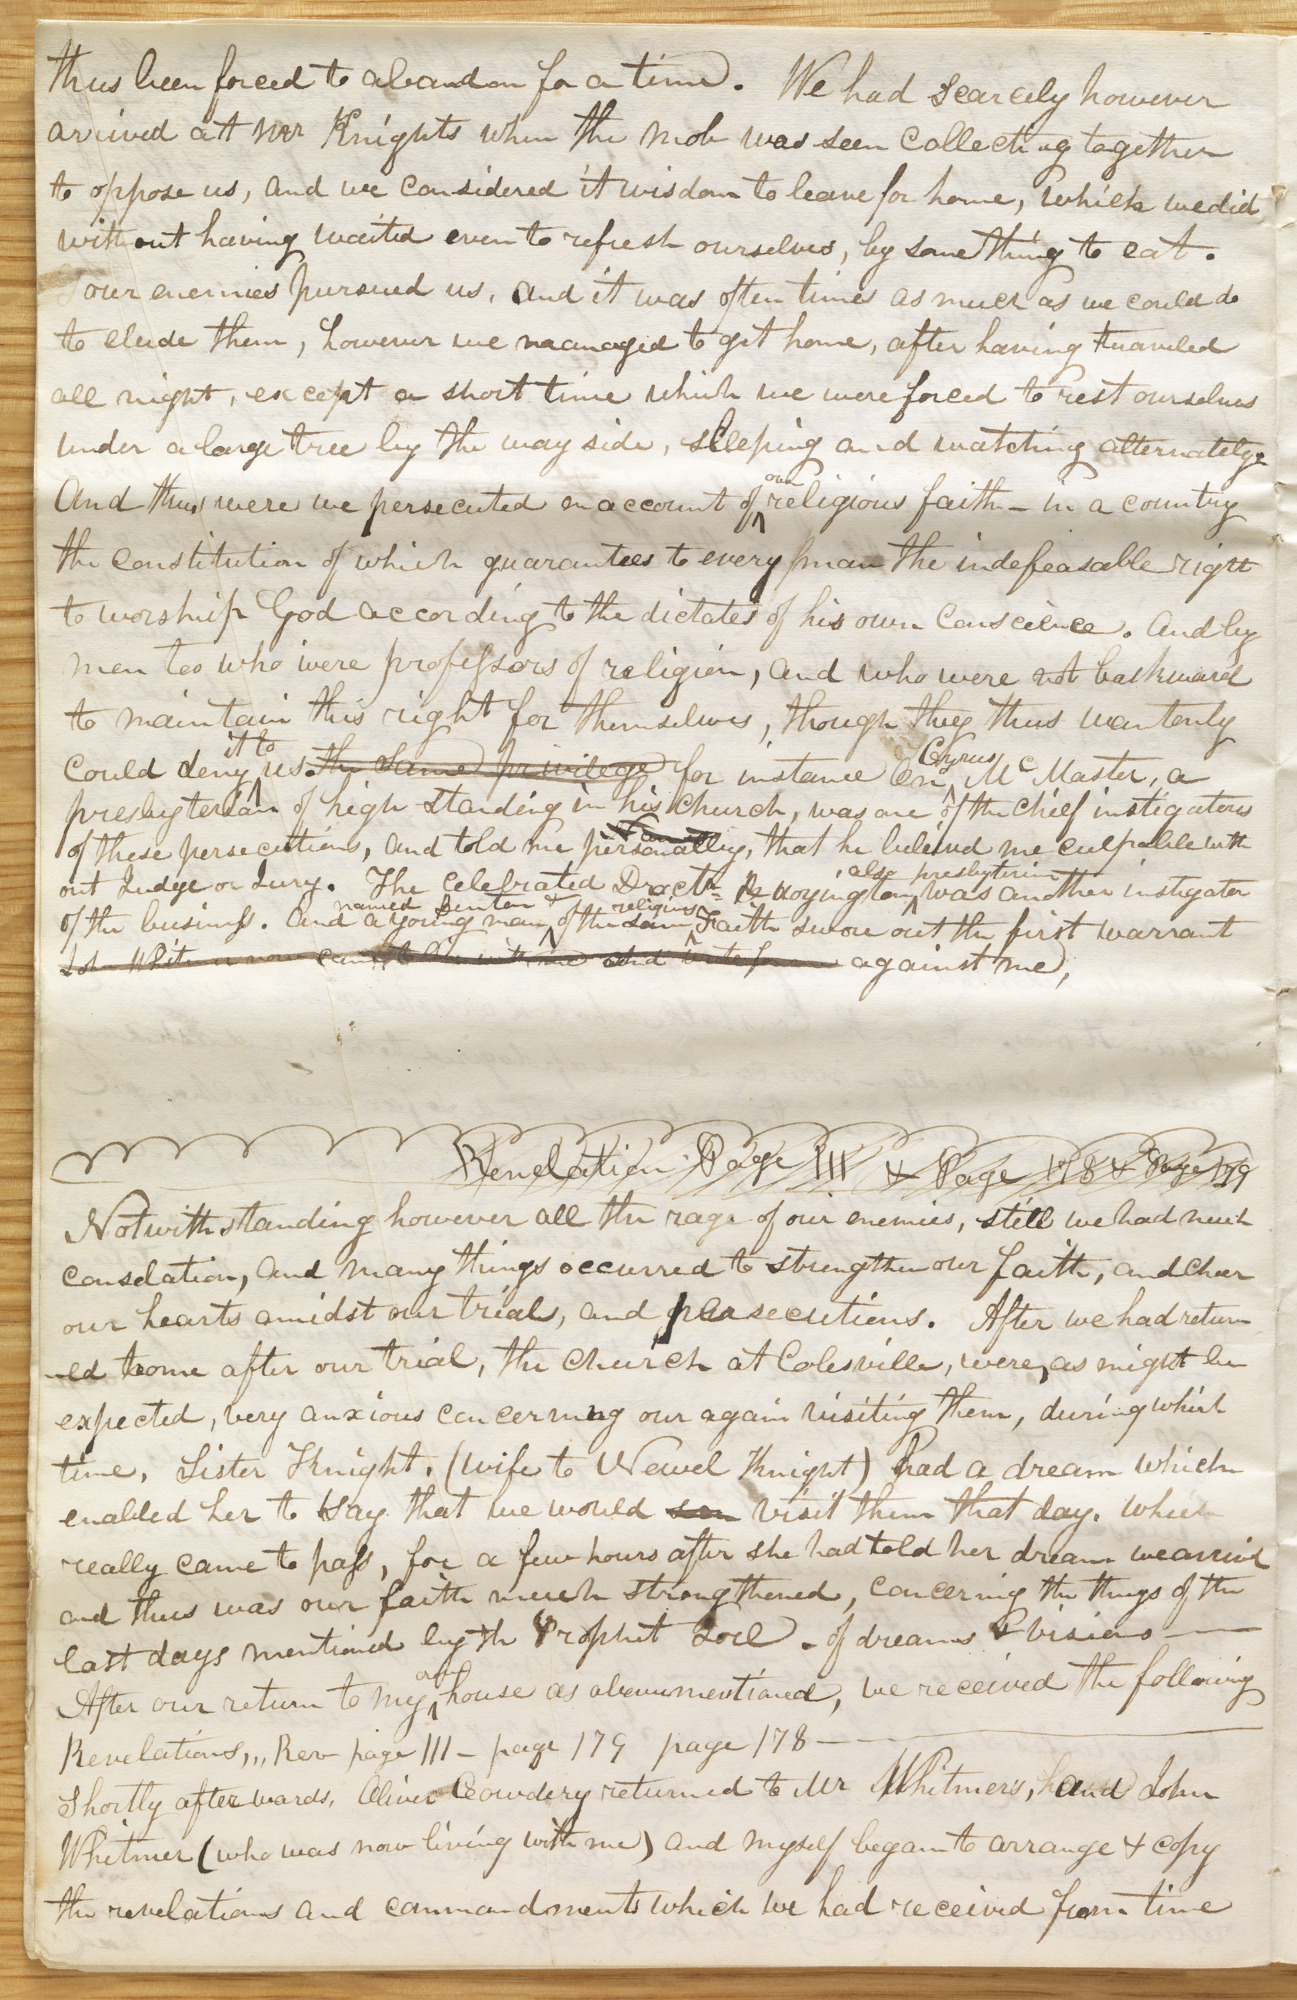 thus been forced to abandon for a time. We had scarcely however
arrived att Mr Knights when the mob was seen collecting together
to oppose us, and we considered it wisdom to leave for home, which we did
without having waited even to refresh ourselves, by some thing to eat.
our enemies pursued us, and it was often times as much as we could do
to elude them, however we managed to get home, after having traveled
all night, except a short time which we were forced to rest ourselves
under a large tree by the way side, sleeping and watching alternately.
And thus were we persecuted on account of our religious faith - in a country
the constitution of which guarantees to every man the indefeasable right
to worship God according to the dictates of his own conscience. And by
men too who were professors of religion, and who were not backward
to maintain this right for themselves, though they thus wantonly
could deny it to us. the same privilege for instance Cyrus Mc Master, a
presbyterian of high standing in his church, was one of the chief instigators
of these persecutions, and told me personally, that he beleived me culpable with
out Judge or Jury. The celebrated Doctr Boyington, also presbyterian was another instigator
of the business. And a young man named Benton of the same religious Faith swore out the first warrant
John Whitmer now came to live with me and write for me against me,
Revelation Page 111 & Page 178 & Page 179
Notwithstanding however all the rage of our enemies, still we had much
consolation, and many things occurred to strengthen our faith, and cheer
our hearts amidst our trials, and persecutions. After we had return
-ed home after our trial, the church at Colesville, were, as might be
expected, very anxious concerning our again visiting them, during which
time, Sister Knight. (wife to Newel Knight) had a dream which
enabled her to say that we would visit them that day. which
really came to pass, for a few hours after she had told her dream we arrived
and thus was our faith much strengthened, concerning the things of the
last days mentioned by the Prophet Joel - of dreams & visions
After our return to my own house as abovementioned, we received the following
Revelations,,, Rev page 111 - page 179 page 178 -
Shortly after wards, Oliver Cowdery returned to Mr Whitmers, and John
Whitmer (who was now living with me) and myself began to arrange & copy
the revelations and commandments which we had received from time